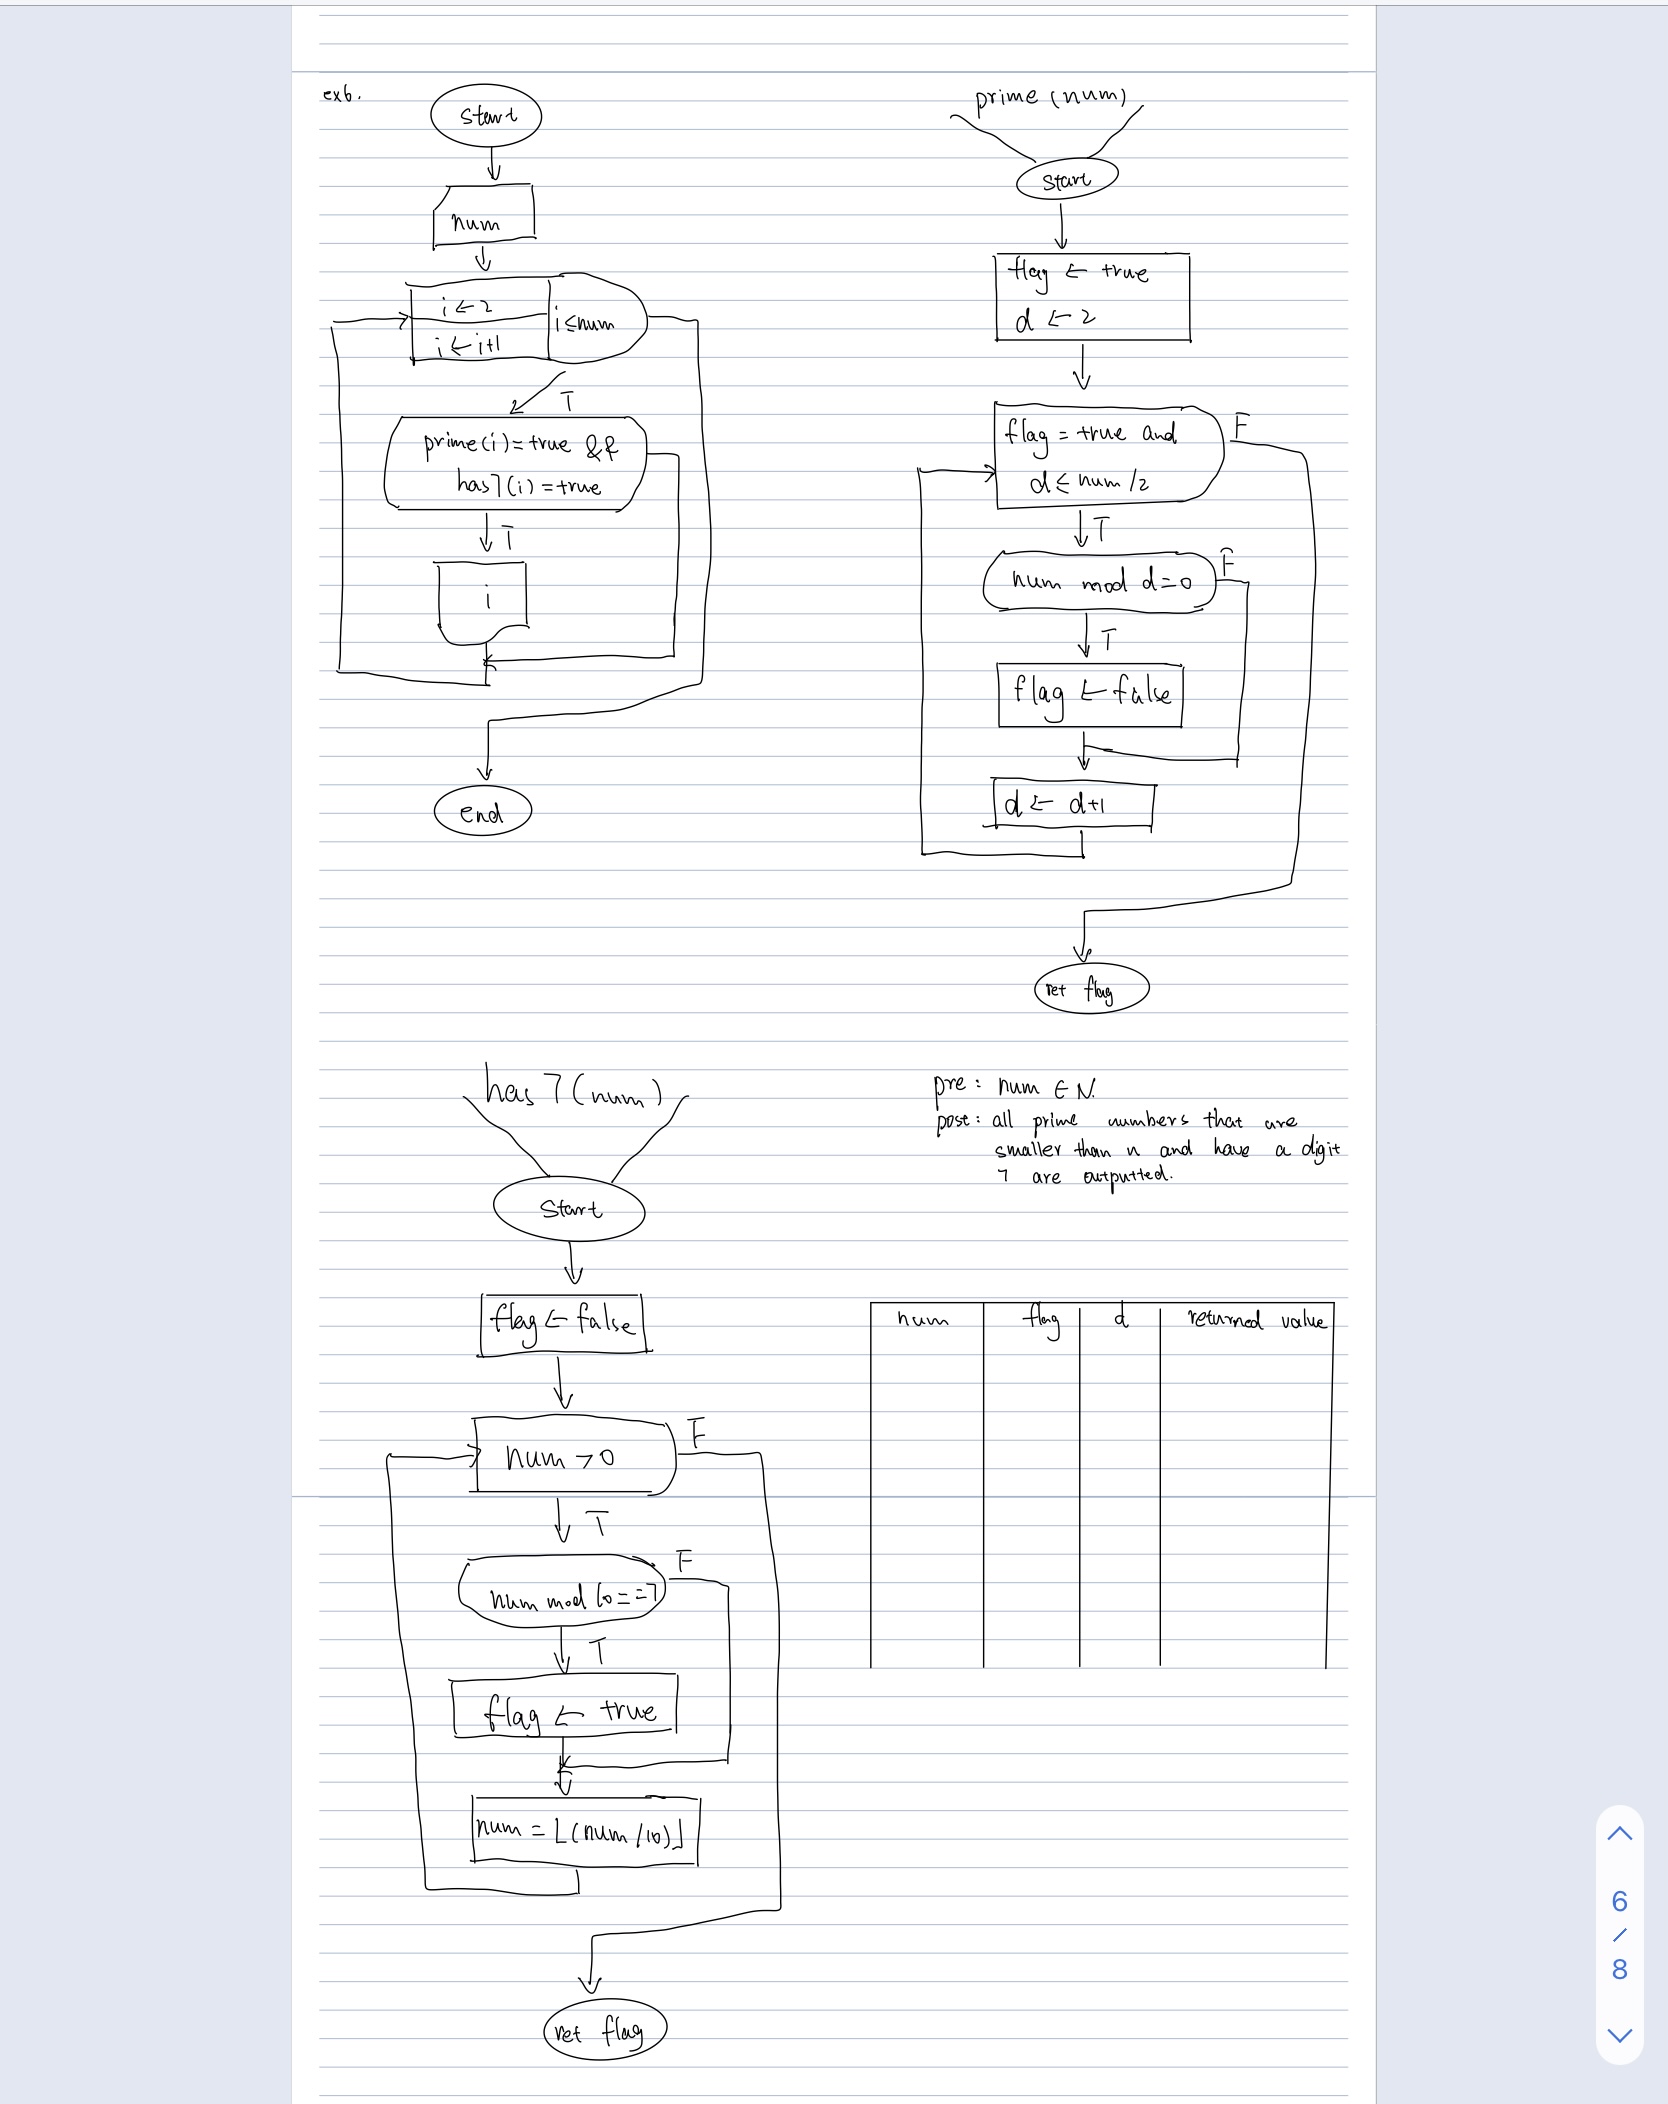 ex6.
start
num
i ← 2
i ≤ num
i ← i+1
T
prime(i) = true &&
has7(i) = true
T
i
end
prime (num)
start
flag ← true
d ← 2
flag = true and
d ≤ num /2
F
T
num mod d = 0
F
T
flag ← false
d ← d+1
ret flag
has 7 (num)
Start
flag ← false
num > 0
F
T
num mod 10 == 7
F
T
flag ← true
num = ⌊(num /10)⌋
ret flag
pre : num ∈ N.
post : all prime numbers that are
smaller than n and have a digit
7 are outputted.
num flag d returned value
6
/
8